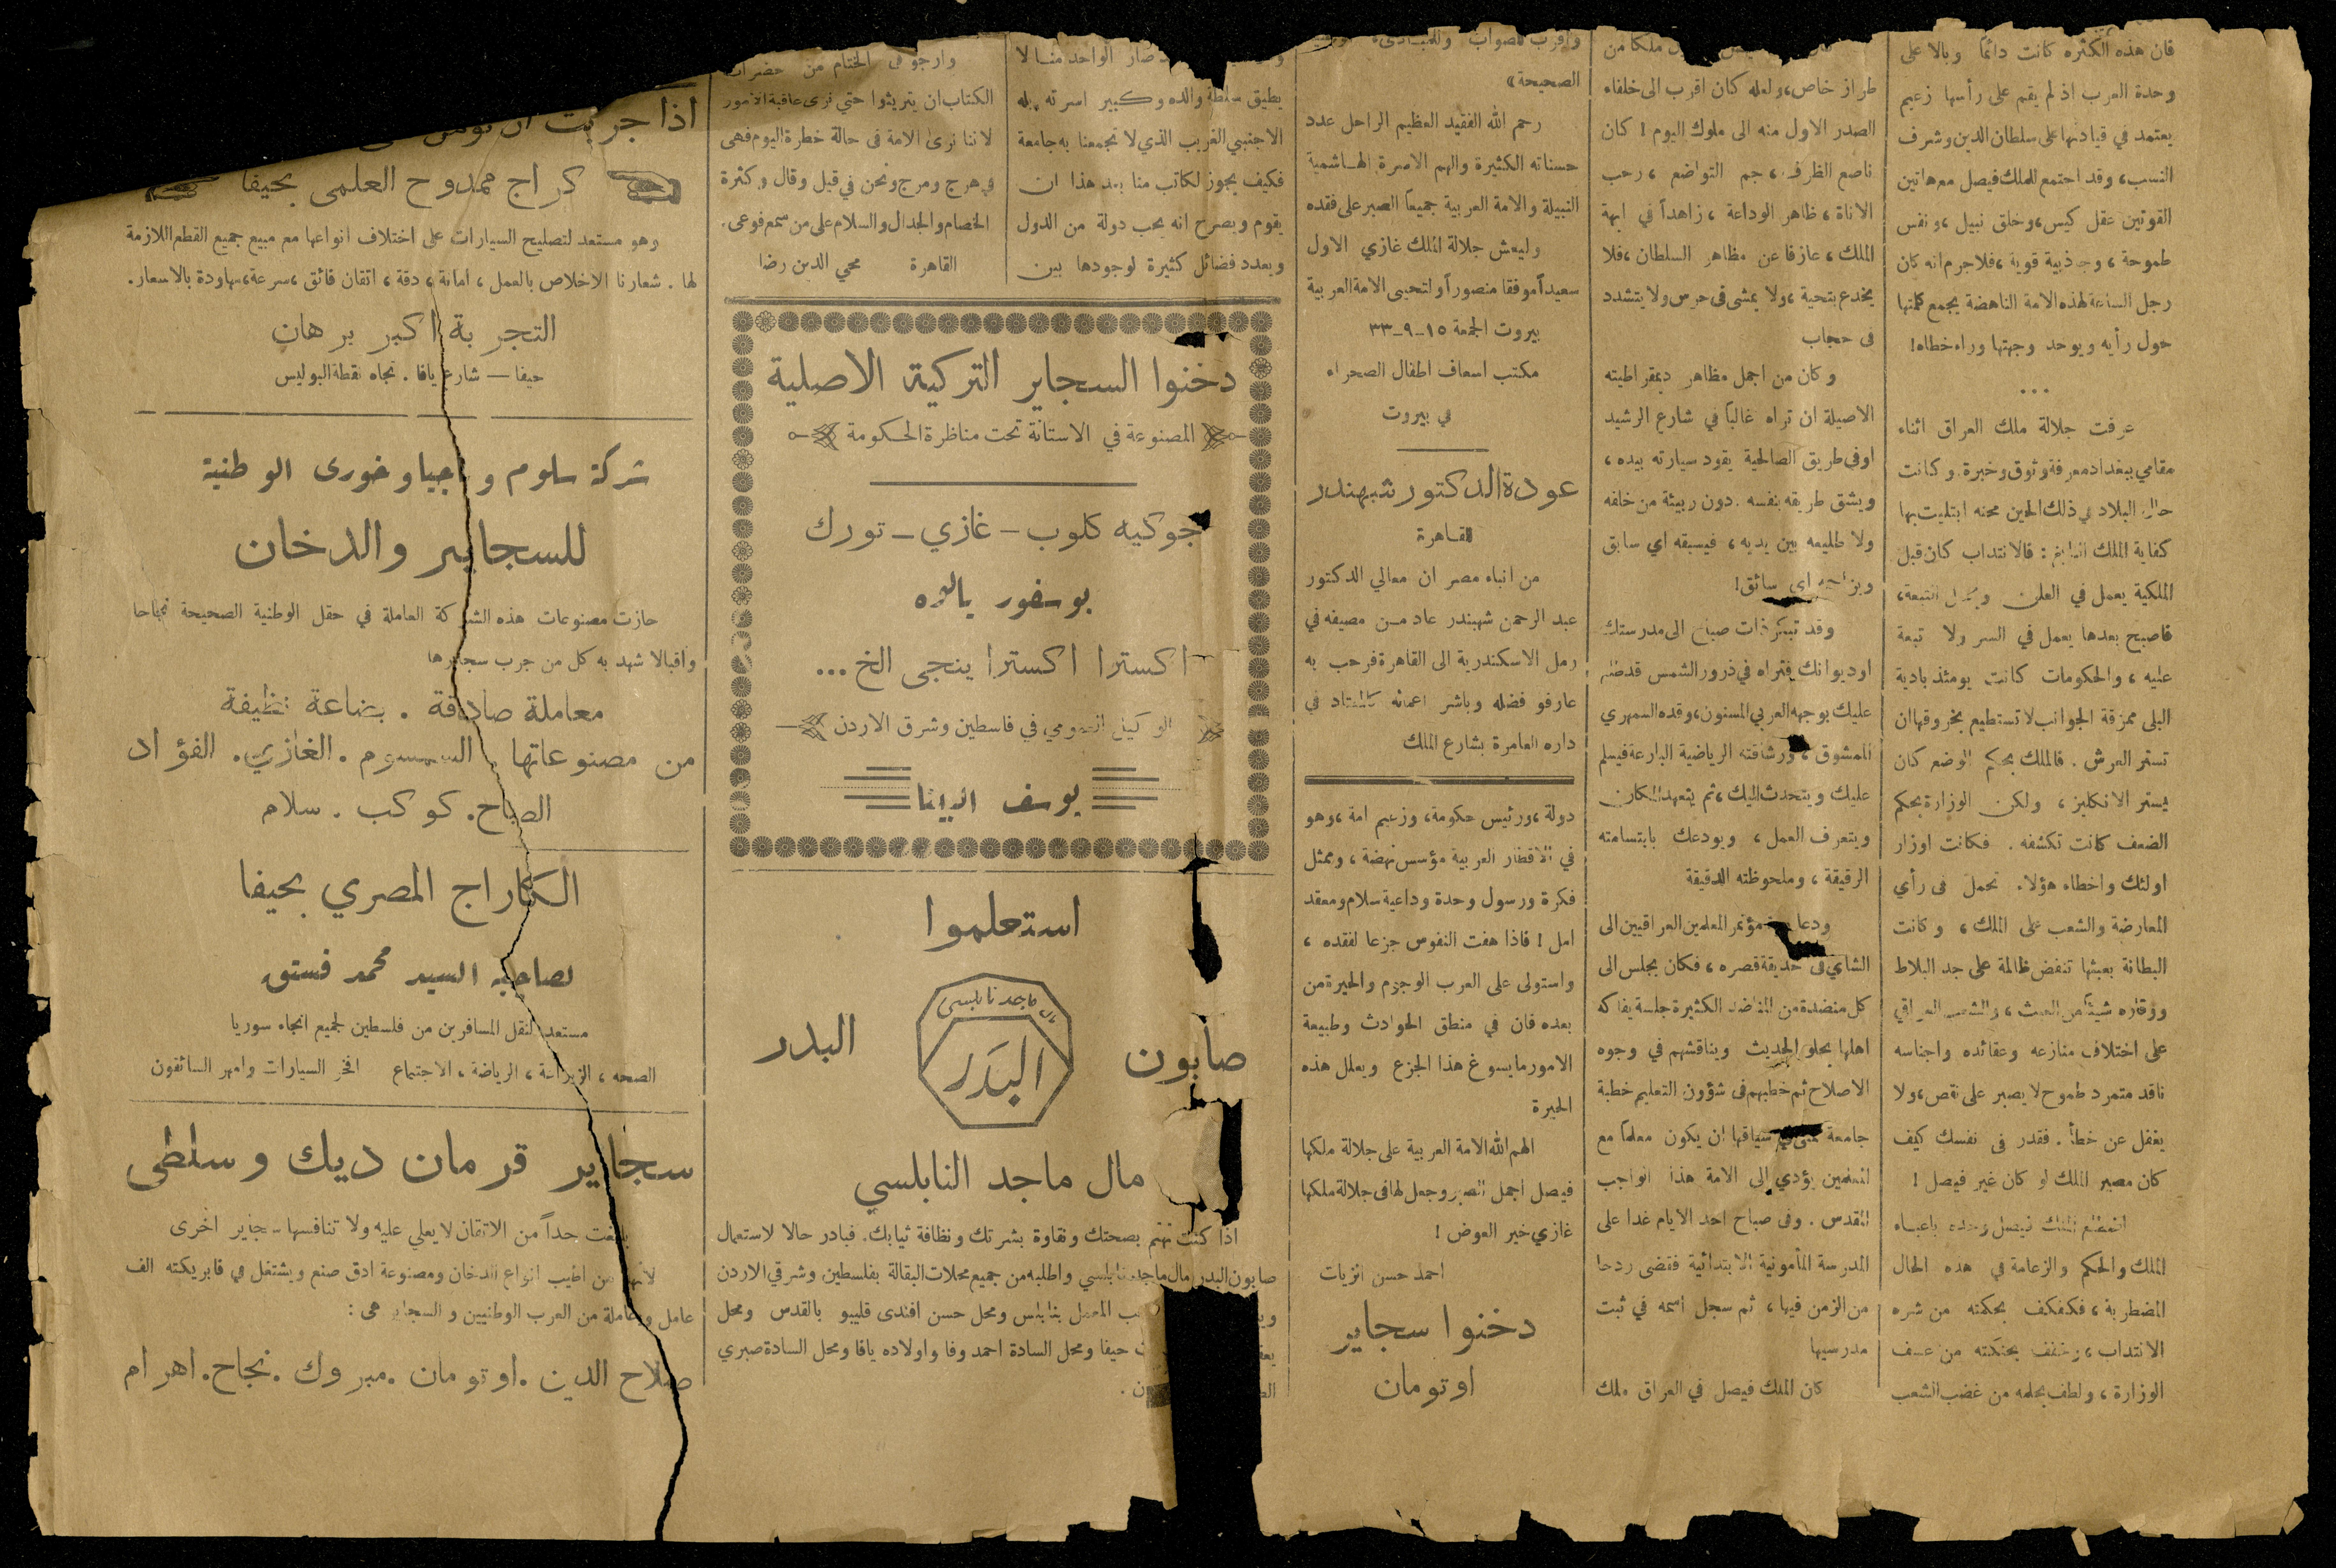 فان هذه الكثره كانت دائماً وبالا على
وحدة العرب اذ لم يقم على رأسها زعيم
يعتمد في قيادتها على سلطان الدين وشرف
النسب، وقد اجتمع للملك فيصل مع هاتين
القوتين عقل كيس، وخلق نبيل، ونفس
طموحة، وجاذبية قوية، فلاجرم انه كان
رجل الساعة لهذه الامة الناهضة يجمع كلمتها
حول رأيه ويوحد وجهتها وراء خطاه!
...
عرفت جلالة ملك العراق اثناء
مقامي ببغداد معرفة وثوق وخبرة. وكانت
حال البلاد في ذلك الحين محنه ابتليت بها
كفاية الملك النابغ: فالانتداب كان قبل
الملكية يعمل في العلن ويحمل التبعة،
فاصبح بعدها يعمل في السر ولا تبعة
عليه، والحكومات كانت يومئذ بادية
البلى ممزقة الجوانب لا تستطيع بخروقها ان
تستر العرش. فالملك بحكم الوضع كان
يستر الانكليز، ولكن الوزارة بحكم
الضعف كانت تكشفه. فكانت اوزار
اولئك واخطاء هؤلاء تحمل فى رأي
المعارضة والشعب على الملك، وكانت
البطانة بعبثها تنفض ظالمة على جد البلاط
ووقاره شيئاً من العبث، والشعب العراقي
على اختلاف منازعه وعقائده واجناسه
ناقد متمرد طموح لا يصبر على نقص، ولا
يغفل عن خطأ. فقدر فى نفسك كيف
كان مصير الملك لو كان غير فيصل!
اضطلع الملك فيصل وحده باعباء
الملك والحكم والزعامة في هذه الحال
المضطربة، فكفكف بحكمته من شره
الانتداب، وخفف بحنكته من عسف
الوزارة، ولطف بحلمه من غضب الشعب
ملكا من
طراز خاص، ولعله كان اقرب الى خلفاء
الصدر الاول منه الى ملوك اليوم! كان
ناصع الظرف، جم التواضع، رحب
الاناة، ظاهر الوداعة، زاهداً في ابهة
الملك، عازفا عن مظاهر السلطان، فلا
يخدع بتحية، ولا يمشى فى حرس ولا يتشدد
فى حجاب
وكان من اجمل مظاهر ديمقراطيته
الاصيلة ان تراه غالباً في شارع الرشيد
اوفى طريق الصالحية يقود سيارته بيده،
ويشق طريقه بنفسه. دون ربيئة من خلفه
ولا طليعه بين يديه، فيسبقه اي سابق
ويزاحمه اي سائق!
وقد تبكر ذات صباح الى مدرستك
اوديوانك فتراه في ذرور الشمس قد طلع
عليك بوجهه العربي المسنون، وقده السمهري
الممشوق، ورشاقته الرياضية البارعة فيسلم
عليك ويتحدث اليك، ثم يتعهد المكان
ويتعرف العمل، ويودعك بابتسامته
الرقيقة، وملحوظته الدقيقة
ودعا مؤتمر المعلمين العراقيين الى
الشاي فى حديقة قصره، فكان يجلس الى
كل منضدة من المناضد الكثيرة جلسة يفاكه
اهلها بحلو الحديث ويناقشهم في وجوه
الاصلاح ثم خطبهم فى شؤون التعليم خطبة
جامعة تمنى في سياقها ان يكون معلماً مع
المعلمين يؤدي الى الامة هذا الواجب
المقدس. وفى صباح احد الايام غدا على
المدرسة المأمونية الابتدائية فقضى ردحا
من الزمن فيها، ثم سجل اسمه في ثبت
مدرسيها
كان الملك فيصل في العراق ملك
واقرب للصواب وللمبادىء
الصحيحة»
رحم الله الفقيد العظيم الراحل عدد
حسناته الكثيرة والهم الاسرة الهاشمية
النبيلة والامة العربية جميعاً الصبر على فقده
وليعش جلالة الملك غازي الاول
سعيداً موفقا منصوراً ولتحيى الامة العربية
بيروت الجمعة ١٥-٩-٣٣
مكتب اسعاف اطفال الصحراء
في بيروت
عودة الدكتور شهبندر
للقاهرة
من انباء مصر ان معالي الدكتور
عبد الرحمن شهبندر عاد من مصيفه في
رمل الاسكندرية الى القاهرة فرحب به
عارفو فضله وباشر اعماله كالمعتاد في
داره العامرة بشارع الملك
دولة، ورئيس حكومة، وزعيم امة، وهو
في الاقطار العربية مؤسس نهضة، وممثل
فكرة ورسول وحدة وداعية سلام ومعقد
امل! فاذا هفت النفوس جزعا لفقده،
واستولى على العرب الوجوم والحيرة من
بعده فان في منطق الحوادث وطبيعة
الامور ما يسوغ هذا الجزع ويعلل هذه
الحيرة
الهم الله الامة العربية على جلالة ملكها
فيصل اجمل الصبر وجعل لها فى جلالة ملكها
غازي خير العوض!
احمد حسن الزيات
دخنوا سجاير
اوتومان
صار الواحد منا لا
يطيق سلطة والده وكبير اسرته بله
الاجنبي الغريب الذي لا تجمعنا به جامعة
فكيف يجوز لكاتب منا بعد هذا ان
يقوم ويصرح انه يحب دولة من الدول
ويعدد فضائل كثيرة لوجودها بين
وارجو فى الختام من حضرات
الكتاب ان يتريثوا حتي نرى عاقبة الامور
لاننا نرى الامة فى حالة خطرة اليوم فهى
في هرج ومرج ونحن في قيل وقال وكثرة
الخصام والجدال والسلام على من سمع فوعى.
القاهرة محي الدين رضا
دخنوا السجاير التركية الاصلية
المصنوعة في الاستانة تحت مناظرة الحكومة
جوكيه كلوب - غازي - تورك
بوسفور يالوه
اكسترا اكسترا ينجى الخ ...
الوكيل العمومي في فلسطين وشرق الاردن
يوسف البينا
استعلموا
صابون
مال ماجد نابلسي
البدر
البدر
مال ماجد النابلسي
اذا كنت تهتم بصحتك ونقاوة بشرتك ونظافة ثيابك. فبادر حالا لاستعمال
صابون البدر مال ماجد نابلسي واطلبه من جميع محلات البقالة بفلسطين وشرقي الاردن
المعمل بنابلس ومحل حسن افندى قليبو بالقدس ومحل
حيفا ومحل السادة احمد وفا واولاده يافا ومحل السادة صبري
اذا جربت
كراج ممدوح العلمى بحيفا
وهو مستعد لتصليح السيارات على اختلاف انواعها مع مبيع جميع القطع اللازمة
لها. شعارنا الاخلاص بالعمل، امانة، دقة، اتقان فائق، سرعة، مهاودة بالاسعار.
التجربة اكبر برهان
حيفا — شارع يافا. تجاه نقطة البوليس
شركة سلوم وناجيا وخورى الوطنية
للسجاير والدخان
حازت مصنوعات هذه الشركة العاملة في حقل الوطنية الصحيحة نجاحا
واقبالا شهد به كل من جرب سجايرها
معاملة صادقة. بضاعة نظيفة
من مصنوعاتها. السمسوم. الغازي. الفؤاد
الصباح. كوكب. سلام
الكاراج المصري بحيفا
لصاحبه السيد محمد فستق
مستعد لنقل المسافرين من فلسطين لجميع انحاء سوريا
الصحه، الزراعة، الرياضة، الاجتماع افخر السيارات وامهر السائقون
سجاير قرمان ديك وسلطى
بلغت حداً من الاتقان لا يعلي عليه ولا تنافسها سجاير اخرى
لانها من اطيب انواع الدخان ومصنوعة ادق صنع ويشتغل في فابريكته الف
عامل وعاملة من العرب الوطنيين والسجاير هى:
صلاح الدين. اوتومان. مبروك. نجاح. اهرام